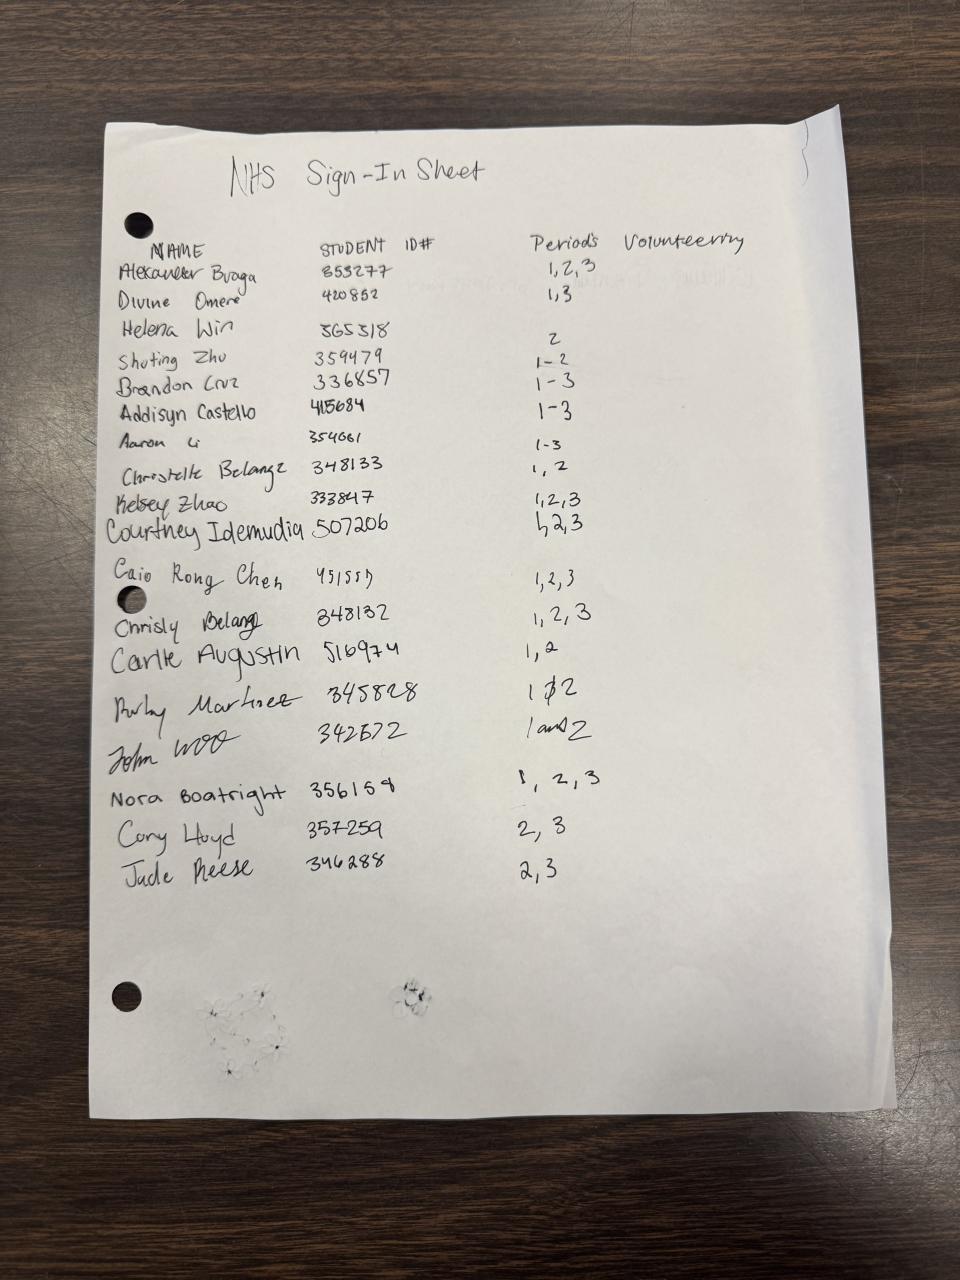 NHS Sign-In Sheet
NAME STUDENT ID# Periods Volunteering
Alexander Braga 353277 1,2,3
Divine Omere 420852 1,3
Helena Win 365318 2
Shuting Zhu 359479 1-2
Brandon Cruz 336857 1-3
Addisyn Castello 415684 1-3
Aaron Li 354661 1-3
Christelle Belange 348133 1, 2
Kelsey Zhao 333847 1,2,3
Courtney Idemudia 507206 1,2,3
Caio Rong Chen 1,2,3
Chrisly Belang 348132 1, 2, 3
Carlie Augustin 516974 1,2
Ruby Martinez 345828 1 $ 2
John Woo 342672 1 and 2
Nora Boatright 356159 1, 2, 3
Cory Lloyd 357259 2, 3
Jade Reese 346288 2,3